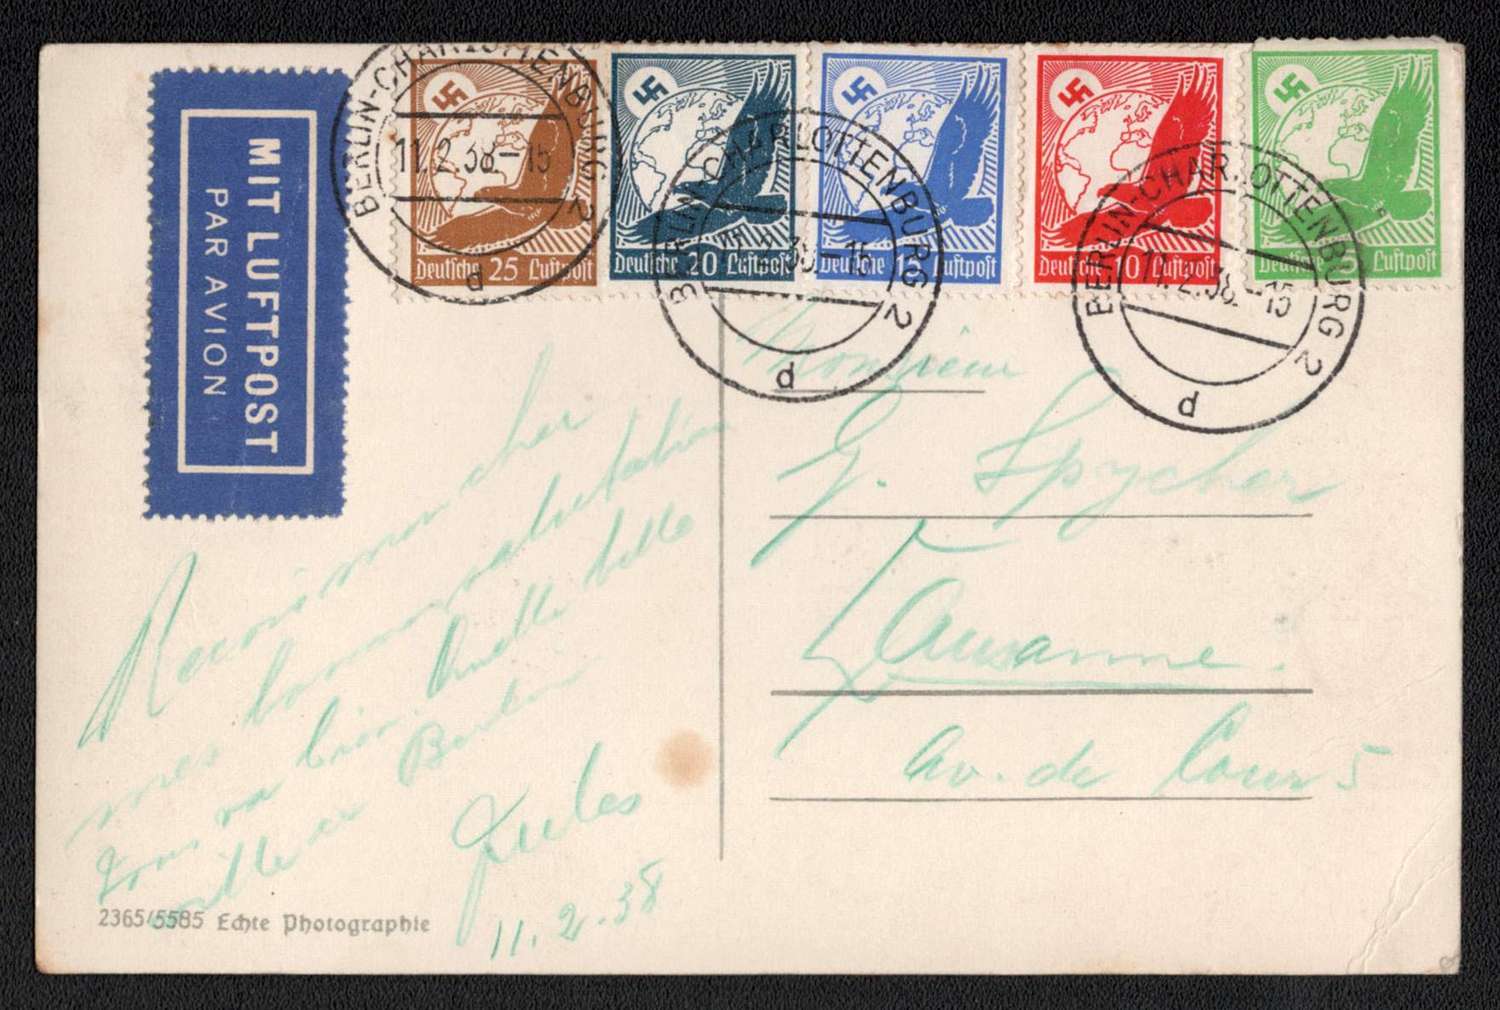 BERLIN-CHARLOTTENBURG 2
11.2.38-15
d
Deutsche 25 Luftpost
Deutsche 20 Luftpost
Deutsche 15 Luftpost
Deutsche 10 Luftpost
Luftpost
BERLIN-CHARLOTTENBURG 2
11.2.38-15
d
BERLIN-CHARLOTTENBURG 2
11.2.38-15
d
MIT LUFTPOST
PAR AVION
Monsieur
G. Spycher
Lausanne.
Av. de Cour 5
mon cher
mes
va bien. Quelle belle
Berlin
Jules
11.2.38
2365/5585 Echte Photographie